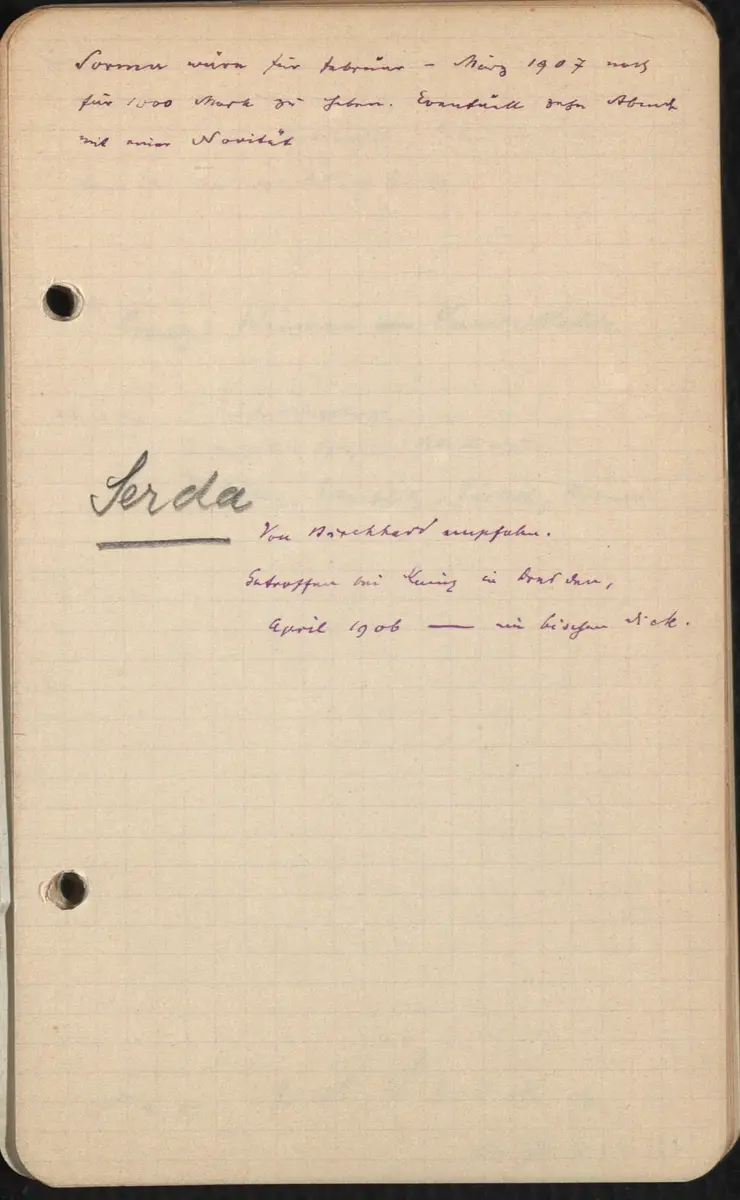 Sorma wäre für Februar - März 1907 noch
für 1000 Mark zu haben. Eventuell zehn Abende
mit einer Novität
Serda
Von Burckhard empfohlen.
Getroffen bei in Dresden,
April 1906 — ein bischen dick.